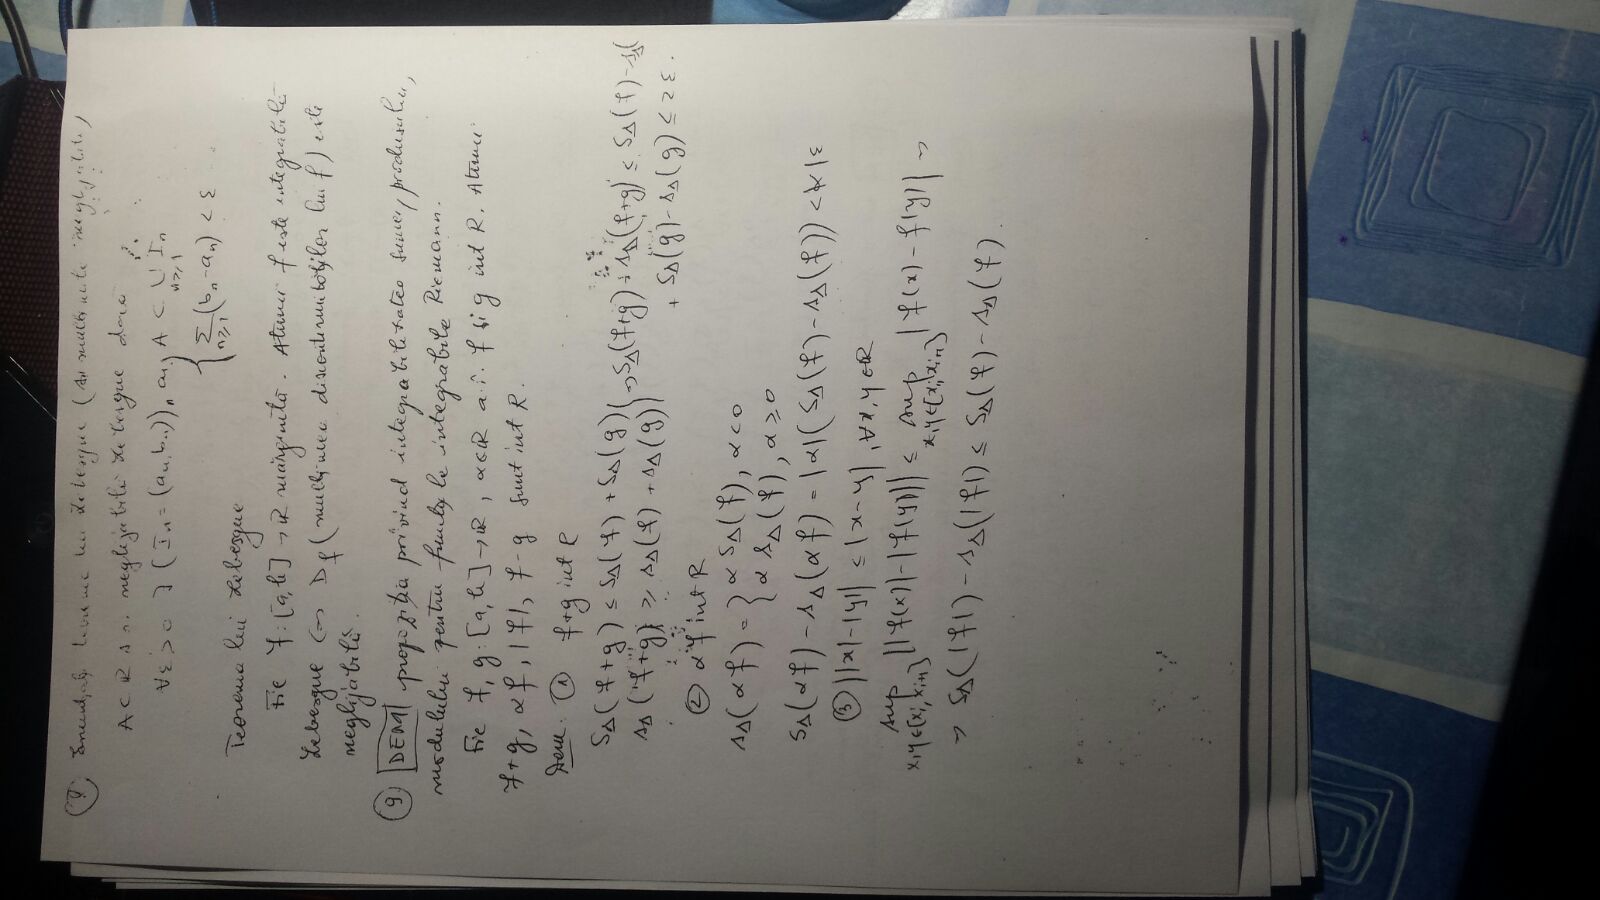 Enunțați teorema lui Lebesgue (cu mulțimile neglijabile)
A ⊂ R s.n. neglijabilă Lebesgue dacă
∀ε>0 ∃ (In = (an, bn))n a.î. { A ⊂ ∪n≥1 In
∑n≥1 (bn - an) < ε
Teorema lui Lebesgue
Fie f: [a,b] → R mărginită. Atunci f este integrabilă
Lebesgue ⇔ Df (mulțimea discontinuităților lui f) este
neglijabilă.
⑨ DEM propoziția privind integrabilitatea sumei, produsului,
modulului pentru funcțiile integrabile Riemann.
Fie f, g: [a,b] → R, α∈R a.î. f și g int R. Atunci
f+g, αf, |f|, f-g sunt int R.
Dem: ① f+g int R
SΔ(f+g) ≤ SΔ(f) + SΔ(g)
sΔ(f+g) ≥ sΔ(f) + sΔ(g) } ⇒ SΔ(f+g) - sΔ(f+g) ≤ SΔ(f) - sΔ(
+ SΔ(g) - sΔ(g) ≤ 2ε.
② αf int R
sΔ(αf) = { α SΔ(f), α<0
α sΔ(f), α≥0
SΔ(αf) - sΔ(αf) = |α|(SΔ(f) - sΔ(f)) < |α|ε
③ ||x|-|y|| ≤ |x-y|, ∀x,y∈R
sup x,y∈[xi,xi+1] ||f(x)|-|f(y)|| ≤ sup x,y∈[xi,xi+1] |f(x) - f(y)| ⇒
⇒ SΔ(|f|) - sΔ(|f|) ≤ SΔ(f) - sΔ(f).